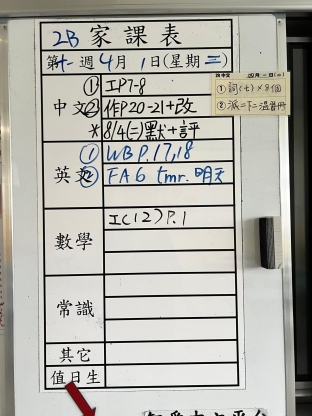 2B 家課表
第十一週 4月 1日(星期三)
中文 ① 工P7-8
② 作P20-21+改
* 8/4(二)默+評
英文 ① WB P.17,18
② FA6 tmr. 明天
數學 工C(12) P.1
常識
其它
值日生
① 詞(七)×8個